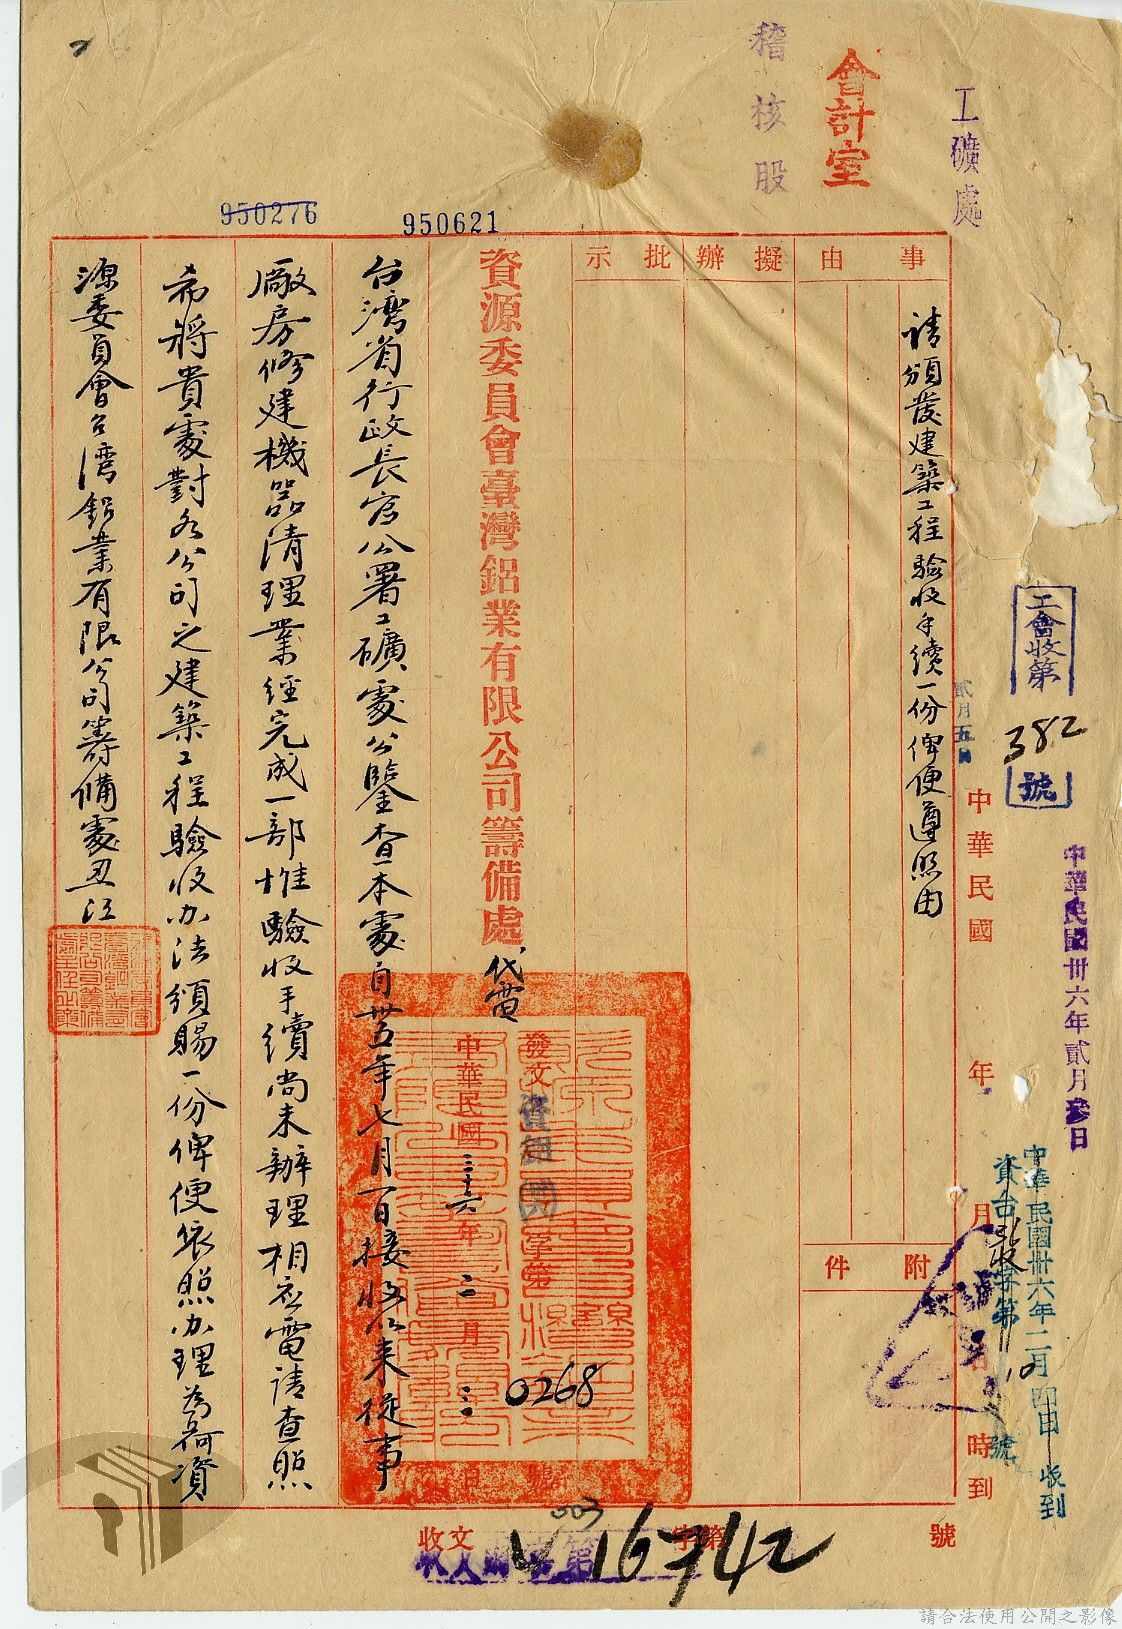 工礦處
會計室
稽核股
950621
950276
事由
擬辦
批示
請頒發建築工程驗收手續一份俾便遵照由
附件
資源委員會臺灣鋁業有限公司籌備處
代電
發文
字第
0268
號
中華民國三十六年二月三日
台灣省行政長官公署工礦處公鑒查本處自卅五年七月一日接收以來從事
廠房修建機器清理業經完成一部惟驗收手續尚未辦理相應電請查照
希將貴處對各公司之建築工程驗收办法頒賜一份俾便依照办理為荷資
源委員會台灣鋁業有限公司籌備處丑江
中華民國 年 月 時到
貳月五日
工會收第
382
號
中華民國卅六年貳月叁日
中華民國卅六年二月四日收到
資台 字第
號
收文 字第 號
003
16742
請合法使用公開之影像